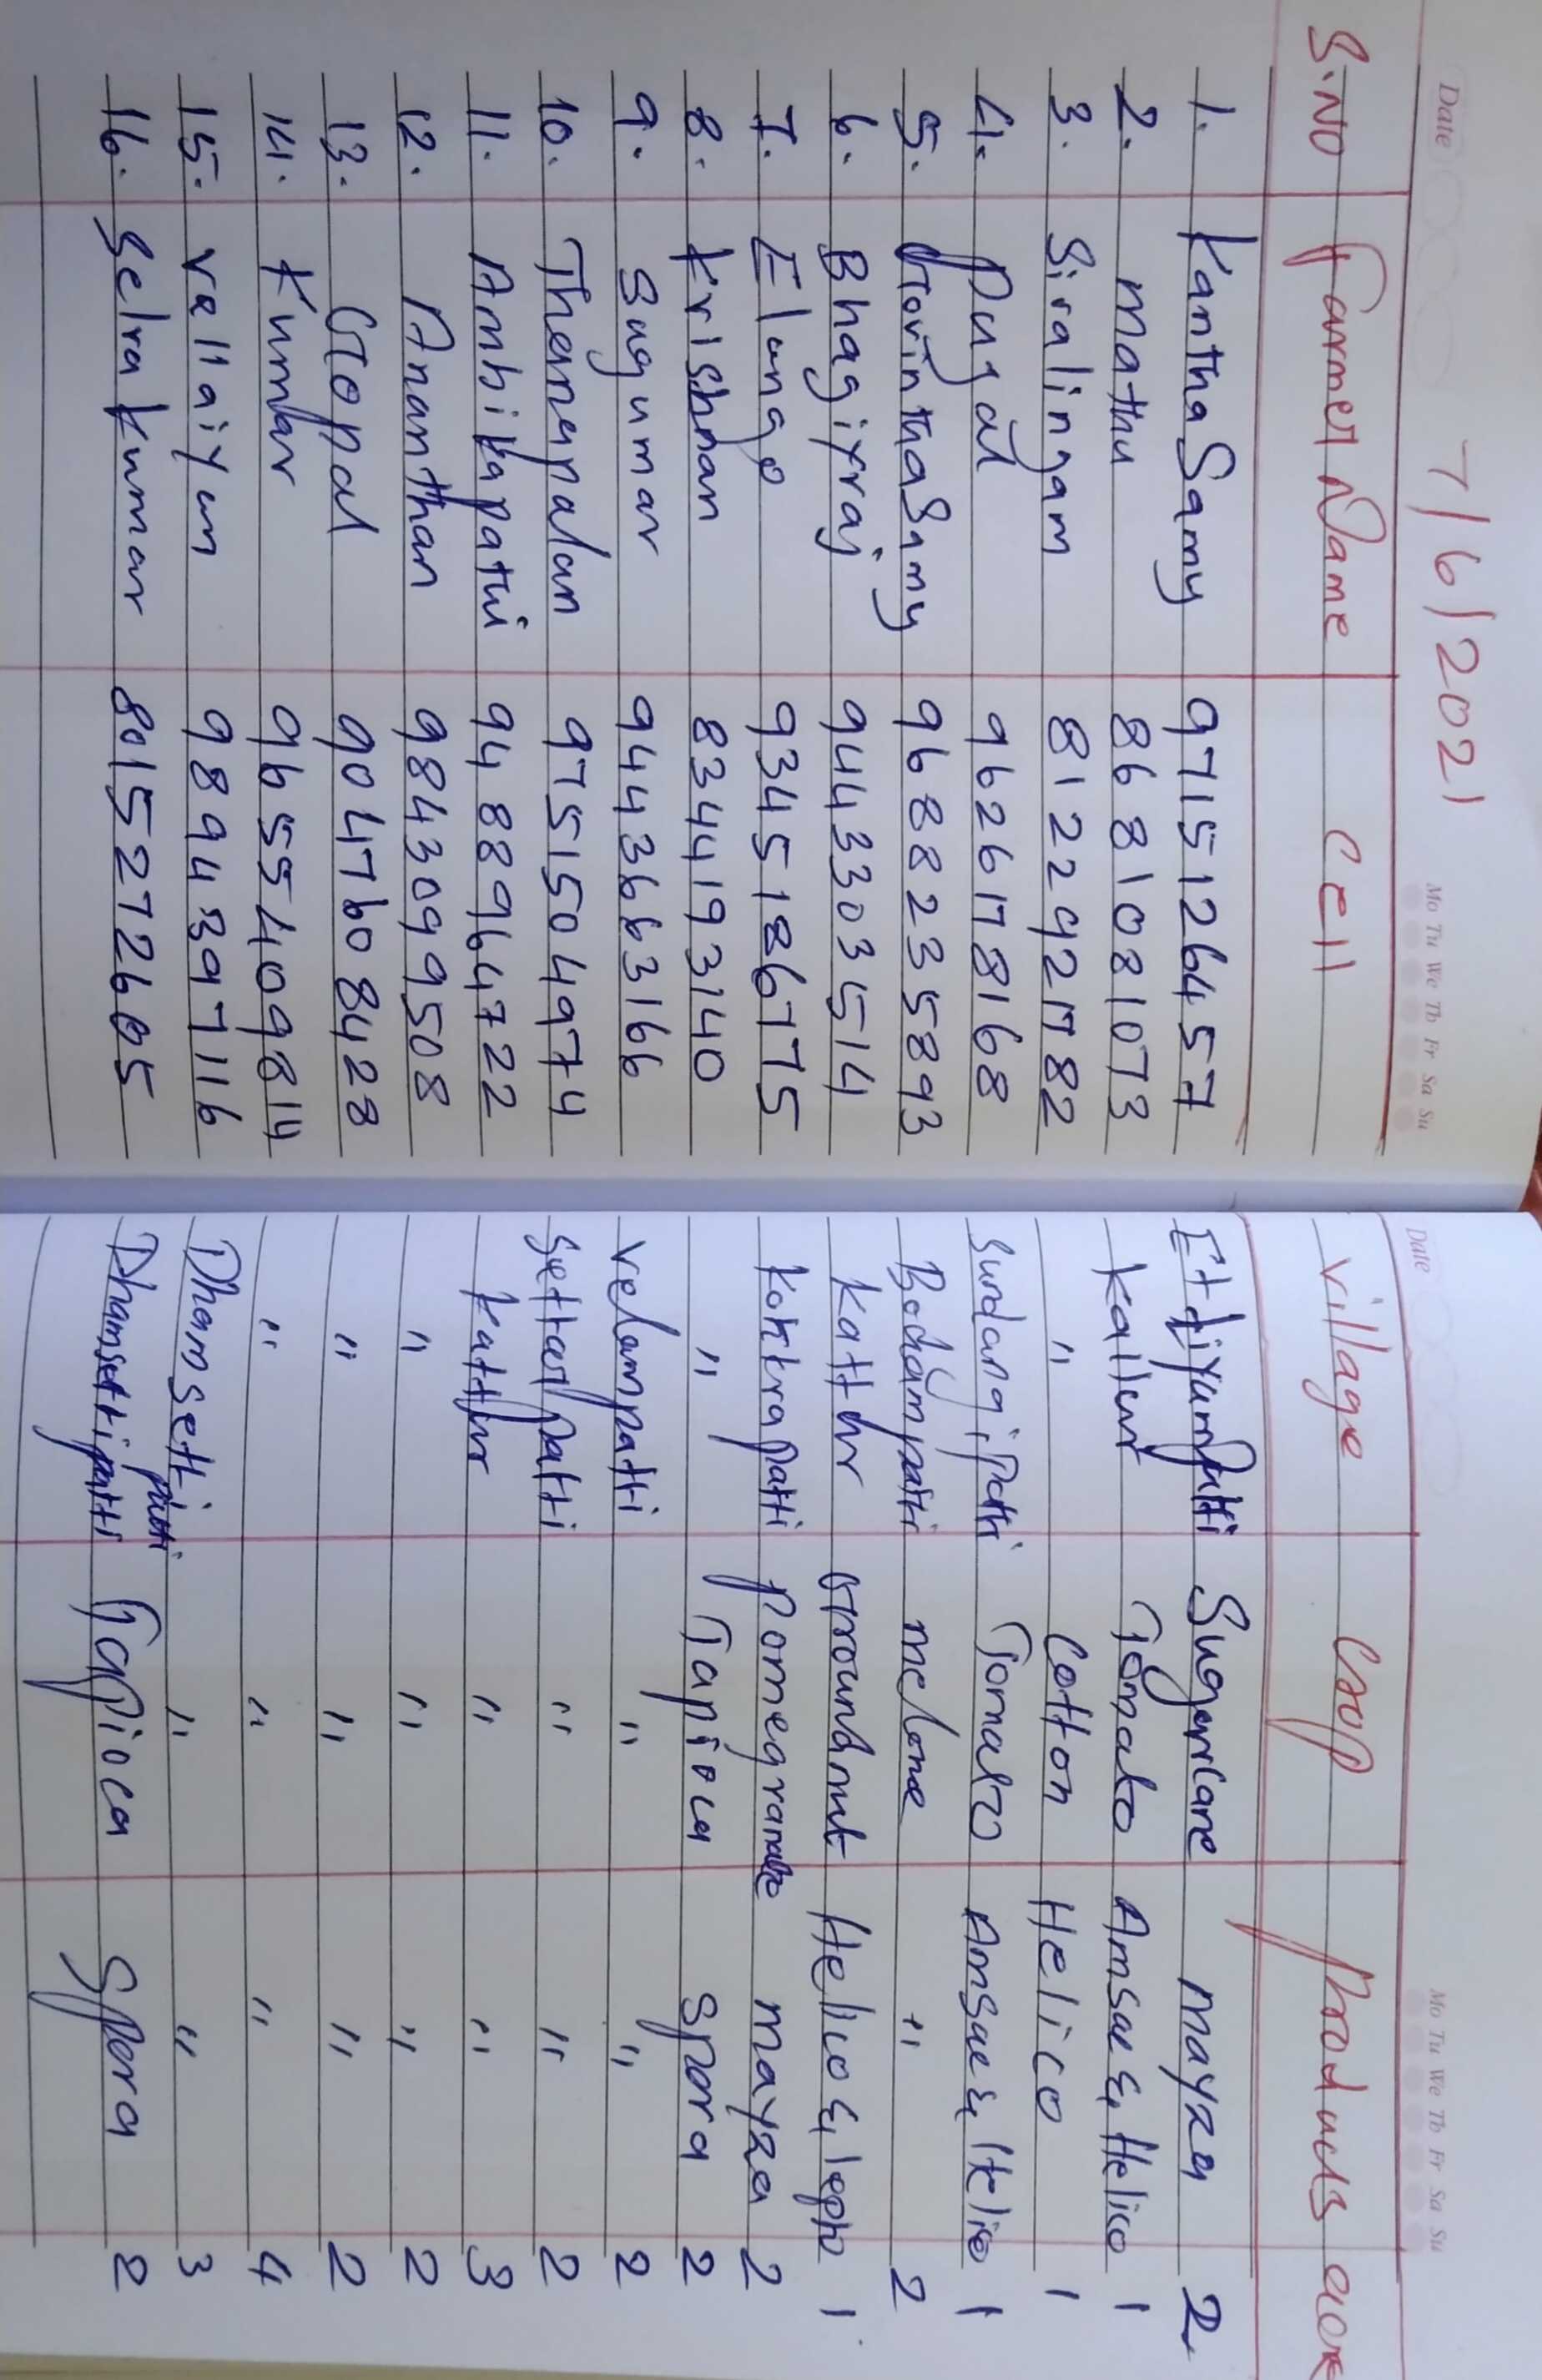 Date 7/6/2021 Mo Tu We Th Fr Sa Su Date Mo Tu We Th Fr Sa Su
S.NO Farmer Name Cell Village Crop Products acre
1. Kantha Samy 9715126457 Ettiyampatti Sugarcane mayza 2
2. mathu 8681081073 Kallur Tomato Amsac & Helico 1
3. Siralingam 8122921782 " Cotton Helico 1
4. Pugal 9626178168 Surdangipatti Tomato Amsac & Helico 1
5. Govintha Samy 9688235893 Bodampatti melone " 2
6. Bhagiyraj 9443303514 Kattur Groundnut Helico & lepto 1
7. Elango 9345186775 Kokkrapatti Pomegranate mayza 2
8. Krishnan 8344193140 " Tapioca Spora 2
9. Sugumar 9443663166 Velampatti " " 2
10. Thenapalan 9751504974 Settarpatti " " 2
11. Ambikapathi 9488964722 Kattur " " 3
12. Ananthan 9843099508 " " " 2
13. Gopal 9047608428 " " " 2
14. Kumar 9655409814 " " " 4
15. Vellaiyan 9894397116 Dhamsetti patti " " 3
16. Selva Kumar 8015272605 Dhamsettipatti Tapioca Spora 2